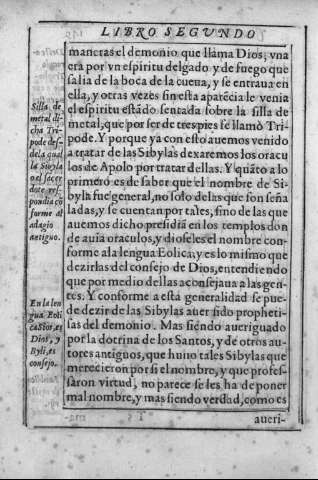 LIBRO SEGUNDO
maneras el demonio que llama Dios; vna
era por vn espiritu delgado y de fuego que
salia de la boca de la cueua, y se entraua en
ella, y otras vezes sin esta aparẽcia le venia
el espiritu estãdo sentada sobre la silla de
metal, que por ser de tres pies se llamò Tri-
pode. Y porque ya con esto auemos venido
a tratar de las Sibylas dexaremos los oracu
los de Apolo por tratar dellas. Y quãto a lo
primero es de saber que el nombre de Si-
byla fue general, no solo de las que son seña
ladas, y se cuentan por tales, sino de las que
auemos dicho presidiã en los templos don
de auia oraculos, y dioseles el nombre con-
forme a la lengua Eolica; y es lo mismo que
dezirlas del consejo de Dios, entendiendo
que por medio dellas aconsejaua a las gen-
tes. Y conforme a esta generalidad se pue-
de dezir de las Sibylas auer sido propheti-
sas del demonio. Mas siendo aueriguado
por la dotrina de los Santos, y de otros au-
tores antiguos, que huuo tales Sibylas que
merecieron por si el nombre, y que profes-
sàron virtud, no parece se les ha de poner
mal nombre, y mas siendo verdad, como es
aueri-
Silla de
metal di
cha Tri-
pode des-
de la qual
la Sibyla
o el sacer
dote res-
pondia cõ
forme al
adagio
antiguo.
En la len
gua Eoli
ca Sios, es
Dios, y
Byli, es
consejo.